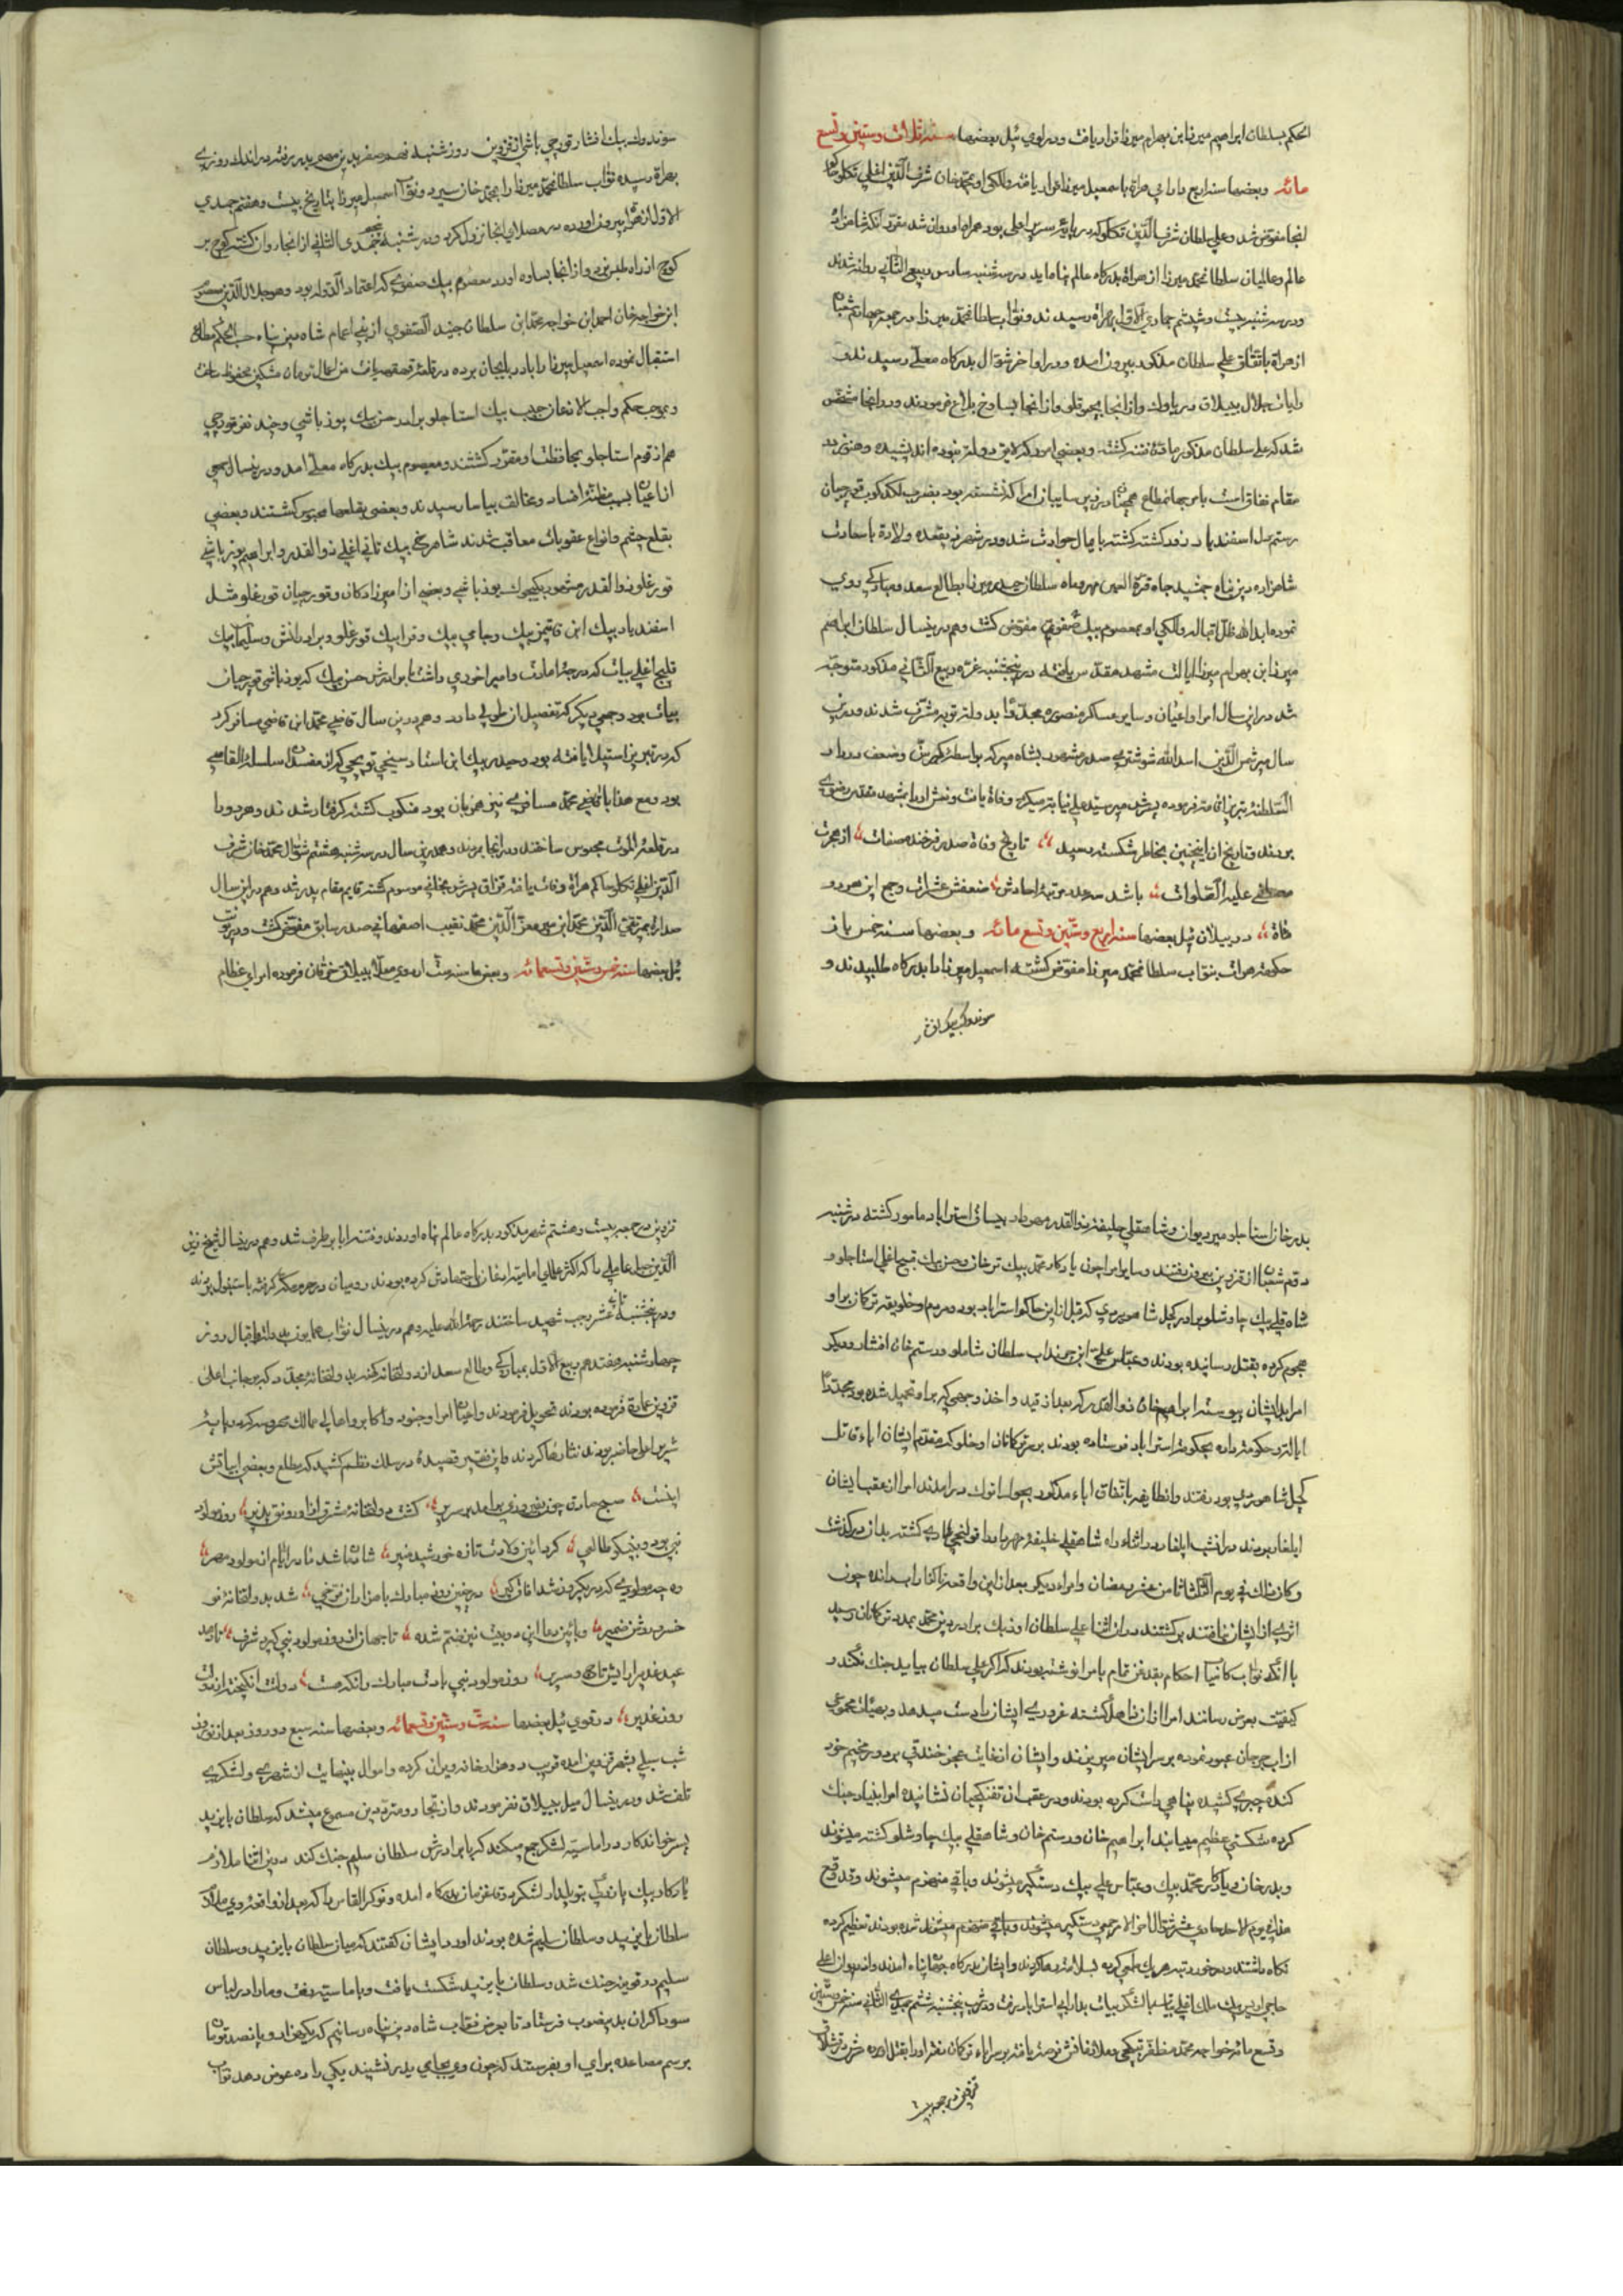 الحکم بسلطان ابراهیم میرزا ابن بهرام میرزا قرار یافت و در اوی ئیل بعضها سنه ثلاث و ستین و تسع
مائه و بعضها سنه اربع دارائی هراة باسمعیل میرزا قرار یافته و للکی او بمحمد خان شرف الدین اغلی تکلو حاکم
انجا مفوض شد و علی سلطان شرف الدین تکلو که در پایه سریر اعلی بود همراه او روان شد مقرر آنکه شاهزاده
عالم و عالمیان سلطان محمد میرزا از هراة بدرکاه عالم پناه اید در سه شنبه سادس ربیع الثانی روانه شدند
و در سه شنبه بیست و ششم جمادی الاول بهراة رسیدند و نواب سلطان محمد میرزا در جمعه چهارم شعبان
از هراة باتفاق علی سلطان مذکور بیرون امده و در اواخر شوال بدرکاه معلی رسیدند و
رایات جلال ببیلاق دریاوک و از انجا بیجوقلو و از انجا بساوخ بلاغ فرمودند و در انجا مشخص
شد که علی سلطان مذکور ماده فتنه کشته و بعضی امور که لایق دولت نبوده اندیشیده و هنوز در
مقام نفاق است بامر جهانمطاع همچنان در زیر سایبان امرا که نشسته بود بضرب لکدکوب قورچیان
رستم دل اسفندیار زور کشته کشته پایمال حوادث شد و در شهر ذیقعده ولادة با سعادت
شاهزاده دین پناه جمشید جاه قرة العین مهر و ماه سلطان حیدر میرزا بطالع سعد و مبارکی روی
نمود مد الله ظل اقباله و للکی او بمعصوم بیک صفوی مفوض کشت و هم درینسال سلطان ابراهیم
میرزا ابن بهرام میرزا ایالت مشهد مقدس یافته در پنجشنبه غره ربیع الثانی مذکور متوجه
شد درین سال امرا و اعیان و سایر عساکر منصوره مجددا بدولت توبه مشرف شدند و درین
سال میر شمس الدین اسد الله شوشتری صدر مشهور بشاه میر که بواسطه کبر سن و ضعف در دار
السلطنه تبریز اقامت فرموده پسرش میر سید علی نیابتش میکرد وفاة یافت و نعش او را بمشهد مقدس رضوی
بردند و تاریخ ان اینچنین بخاطر شکسته رسید تاریخ وفاة صدر فرخنده صفات از هجرت
مصطفی علیه الصلوات باشد سه عدد مرتبه احادش ضعفش عشرات و جمع این هر دو
مات در ییلان ئیل بعضها سنه اربع و ستین و تسع مائه و بعضها سنه خمس باز
حکومت هرات بنواب سلطان محمد میرزا مفوض کشته اسمعیل میرزا را بدرکاه طلبیدند و
سوندوک بیک افشار
سوندوک بیک افشار قورچی باشی از قزوین روز شنبه نهم صفر بدین مهم بدر رفته در اندک روزی
بهراة رسیده نواب سلطان محمد میرزا را بمحمد خان سپرد و نواب اسمعیل میرزا بتاریخ بیست و هفتم جمادی
الاول از هراة بیرون اورده در مصلای انجا نزول کرد و در شنبه پنجم جمادی الثانی از انجا روان کشته کوچ بر
کوچ از راه طبس یزد و از انجا بساوه اورد معصوم بیک صفوی که اعتماد الدوله بود
ابن خواجه خان احمد ابن خواجه محمد ابن سلطان جنید الصفوی از بنی اعمام شاه دین پناه حسب الحکم مطاع
استقبال نموده اسمعیل میرزا را باذربایجان برده در قلعه قهقهه یافت من اعمال تومان مشکین محفوظ ساخت
و بموجب حکم واجب الاذعان حبیب بیک استاجلو برادر حسن بیک یوزباشی و چند نفر قورچی
هم از قوم استاجلو بمحافظت او مقرر کشتند و معصوم بیک بدرکاه معلی امد و درینسال جمعی
از اعیان بسبب مظنه افساد و مخالفت بیاسا رسیدند و بعضی بقلعها محبوس کشتند و بعضی
بقلع چشم و انواع عقوبات معاقب شدند شاهرخ بیک تاتی اغلی ذوالقدر و ابراهیم یوزباشی
قورغلو ذوالقدر مشهور بکیچوک یوزباشی و بعضی از امیرزادکان و قورچیان قورغلو مثل
اسفندیار بیک ابن قاپمز بیک و جامی بیک و قرابیک قورغلو و برادرانش و سلیمان بیک
قلیچ اغلی بیات که درجه امارت و امیر اخوری داشت با برادرش حسن بیک که یوزباشی قورچیان
بیات بود و جمعی دیکر که تفصیل ان طولی دارد و هم درین سال قاضی محمد ابن قاضی مسافر کرد
که در تبریز استیلا یافته بود و حیدر بیک ابن استاد سیخی توپچی که از مفسدان سلسله القاصی
بود و مع هذا با قاضی محمد مسافری نیز همزبان بود منکوب کشته کرفتار شدند و هر دو را
در قلعه الموت محبوس ساختند و در انجا مردند و هم درین سال در سه شنبه هشتم شوال محمد خان شرف
الدین اغلی تکلو حاکم هراة وفات یافته قزاق پسرش بخانی موسوم کشته قایم مقام پدر شد و هم درین سال
صدارة بمیر تقی الدین محمد ابن میر معز الدین محمد نقیب اصفهانی صدر سابق مفوض کشت و در یونت
ئیل بعضها سنه خمس و ستین و تسعمائه و بعضها سنه ست اردوی معلا ببیلاق خرقان فرموده امرای عظام
بدر خان استاجلو میر دیوان و شاهقلی خلیفه ذوالقدر مهردار بیساق استراباد مامور کشته در شنبه
دوم شعبان از قزوین بیرون رفتند و سایر امرا چون یادکار محمد بیک ترخان و حسن بیک قبیح اغلی استاجلو و
شاه قلی بیک چاوشلو برادر کچل شاهویردی که قبل ازین حاکم استراباد بود و مردم اوخلو یقه ترکمان بر او
هجوم کرده بقتل رسانیده بودند و عباس علی بیک ابن جهنداب سلطان شاملو و رستم خان افشار و دیکر
امرا بدیشان پیوسته ابراهیم خان ذوالقدر که بعد از قید و اخذ وجهی که بر او تحمیل شده بود مجددا
ایالت و حکومت داده بحکومت استراباد فرستاده بودند بر سر ترکمانان اوخلو که مقدم ایشان اباء قاتل
کچل شاهویردی بود رفتند و انطایفه باتفاق اباء مذکور بچول اترک در امدند امرا از عقب ایشان
ایلغار بردند در انشب ایلغار در اثناء راه شاهقلی خلیفه مهردار را قولنجی طاری کشته بدان درکذشت
و کان ذلک فی یوم الثلثا ثامن عشر رمضان و امراء دیکر بعد از این واقعه
اثری از ایشان نیافتند برکشتند در ان اثنا علی سلطان اوزبک برادر دین محمد بمدد ترکمانان رسید
با انکه نواب کامیاب احکام بقدغن تمام بامرا نوشته بودند که اکر علی سلطان بیاید جنک نکند و
کیفیت بعرض رسانند امرا از ان غافل کشته غروری ایشان را دست میدهد و بهیات مجموعی
از اب جرجان عبور نموده بر سر ایشان میریزند و ایشان از غایت عجز خندقی بر دور مخیم خود
کنده چپری کشیده پناهی راست کرده بودند و در عقب ان تفنکچیان نشانیده امرا بنیاد جنک
کرده شکستی عظیم مییابند ابراهیم خان و رستم خان و شاهقلی بیک چاوشلو کشته میشوند
و بدر خان و یادکار محمد بیک و عباس علی بیک دستکیر میشوند و باقی منهزم میشوند و قد وقع
هذا فی یوم الاحد حادی عشر شوال
نکاه داشتند و در خور رتبه هر یک بسلامت رها کردند و ایشان بدرکاه جهان پناه امدند و از دیوان اعلی
حاجی اویس بیک ملک اغلی بیات با لشکر بیات بدارایی استراباد رفت و در شب پنجشنبه ششم جمادی الثانی سنه خمس و ستین
و تسع مائه خواجه محمد مظفر تبکچی
قزوین در جمعه بیست
قزوین در جمعه بیست و هشتم شهر مذکور بدرکاه عالم پناه اوردند و فتنه ابا برطرف شد و هم درینسال شیخ زین
الدین جبل عاملی را که اکثر علمای امامیه اذعان باجتهادش کرده بودند رومیان در حرم مکه کرفته باستنبول بردند
و در پنجشنبه ثانی عشر رجب شهید ساختند رحمة الله علیه و هم درینسال نواب همایون بدولت و اقبال روز
چهارشنبه هفتدهم ربیع الاول بمبارکی و طالع سعد از دولتخانه کهنه بدولتخانه مجدد که بر جانب اعلی
قزوین عمارة فرموده بودند تحویل فرمودند و اعیان امرا و جنود و اکابر و اهالی ممالک محروسه که در پایه
سریر اعلی حاضر بودند نثارها کردند و این فقیر قصیدهٔ در سلک نظم کشید که مطلع و بعضی ابیاتش
اینست صبح صادق چون شه خاور بر امد بر سریر کشت در دولتخانه مشرق فزا و رونق پذیر روز مولود
نبی بود و به نیکو طالعی کرد از این ولادت تازه خورشید منیر شادمان شد نادر ایام از مولود مهر
وه چه مولودی که در یکروز شد افاق کیر در چنین روزی مبارک با هزاران فرخی شد بدولتخانه نو
خسرو روشن ضمیر و باین دعا این دو بیت نیز ختم شده تا جهان از روز مولود نبی کیرد شرف تا دهد
عید غدیر ارایش تاج و سریر روز مولود نبی بادت مبارک وانکه هست دولت انکیختر از دولت
روز غدیر در قوی ئیل بعضها سنه ست و ستین و تسعمائه و بعضها سنه سبع دو روز بعد از نوروز
شب سیلی بشهر قزوین امده قریب دو هزار خانه ویران کرده و اموال بینهایت از شهری و لشکری
تلف شد و درینسال میل ببیلاق نفرمودند و از تجار و مترددین مسموع میشد که سلطان بایزید
پسر خواندکار در اماسیه لشکر جمع میکند که با برادرش سلطان سلیم جنک کند درین اثنا ملازم
یادکار بیک پازوکی توپلیدار لشکر دو نفر نزد بدرکاه امده و نوکر القاس را که بعد از واقعه وی ملازم
سلطان بایزید و سلطان سلیم شده بودند اورد ایشان کفتند که میان سلطان بایزید و سلطان
سلیم در قونیه جنک شد و سلطان بایزید شکست یافت و باماسیه رفت و ما را در لباس
سوداکران بدینصوب فرستاد تا بعرض نواب شاه دین پناه رسانیم که یکهزار و پانصد تومان
برسم مساعده برای او بفرستند که چون وی بجای پدر نشیند یکی را ده عوض دهد نواب